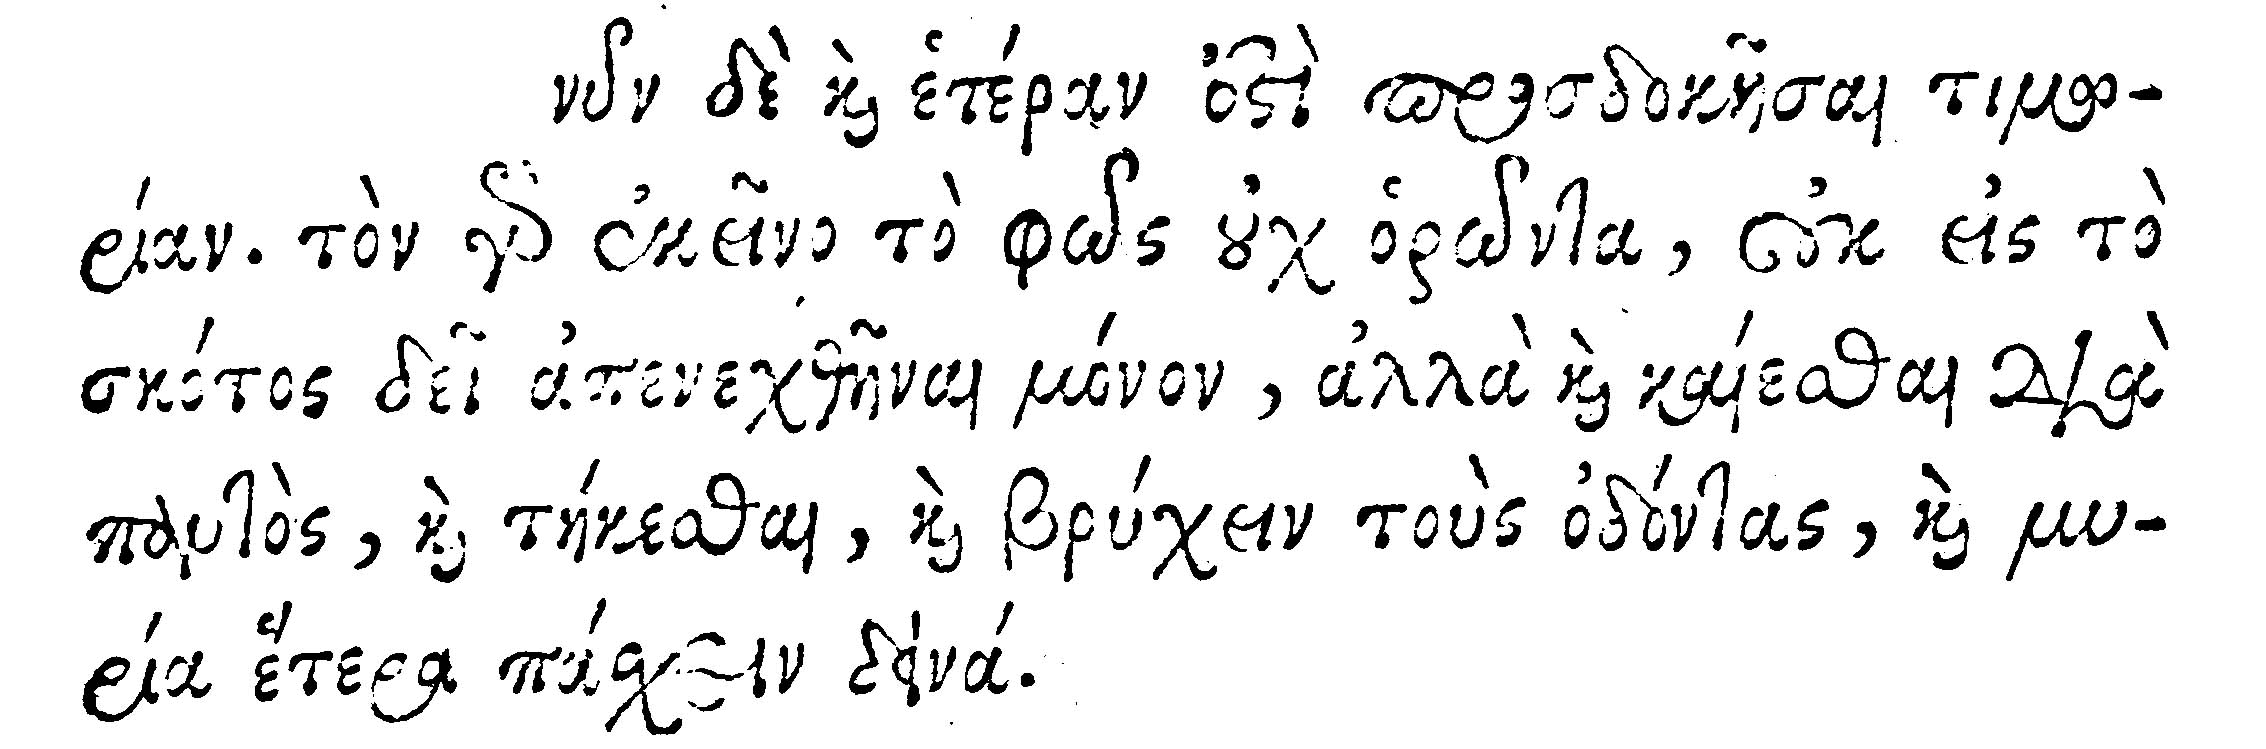 νῦν δὲ καὶ ἑτέραν ἐστὶ προσδοκῆσαι τιμω-
ρίαν. τὸν γὰρ ἐκεῖνο τὸ φῶς οὐχ ὁρῶντα, οὐκ εἰς τὸ
σκότος δεῖ ἀπενεχθῆναι μόνον, ἀλλὰ καὶ καίεσθαι διὰ
παντὸς, καὶ τήκεσθαι, καὶ βρύχειν τοὺς ὀδόντας, καὶ μυ-
ρία ἕτερα πάσχειν δεινά.